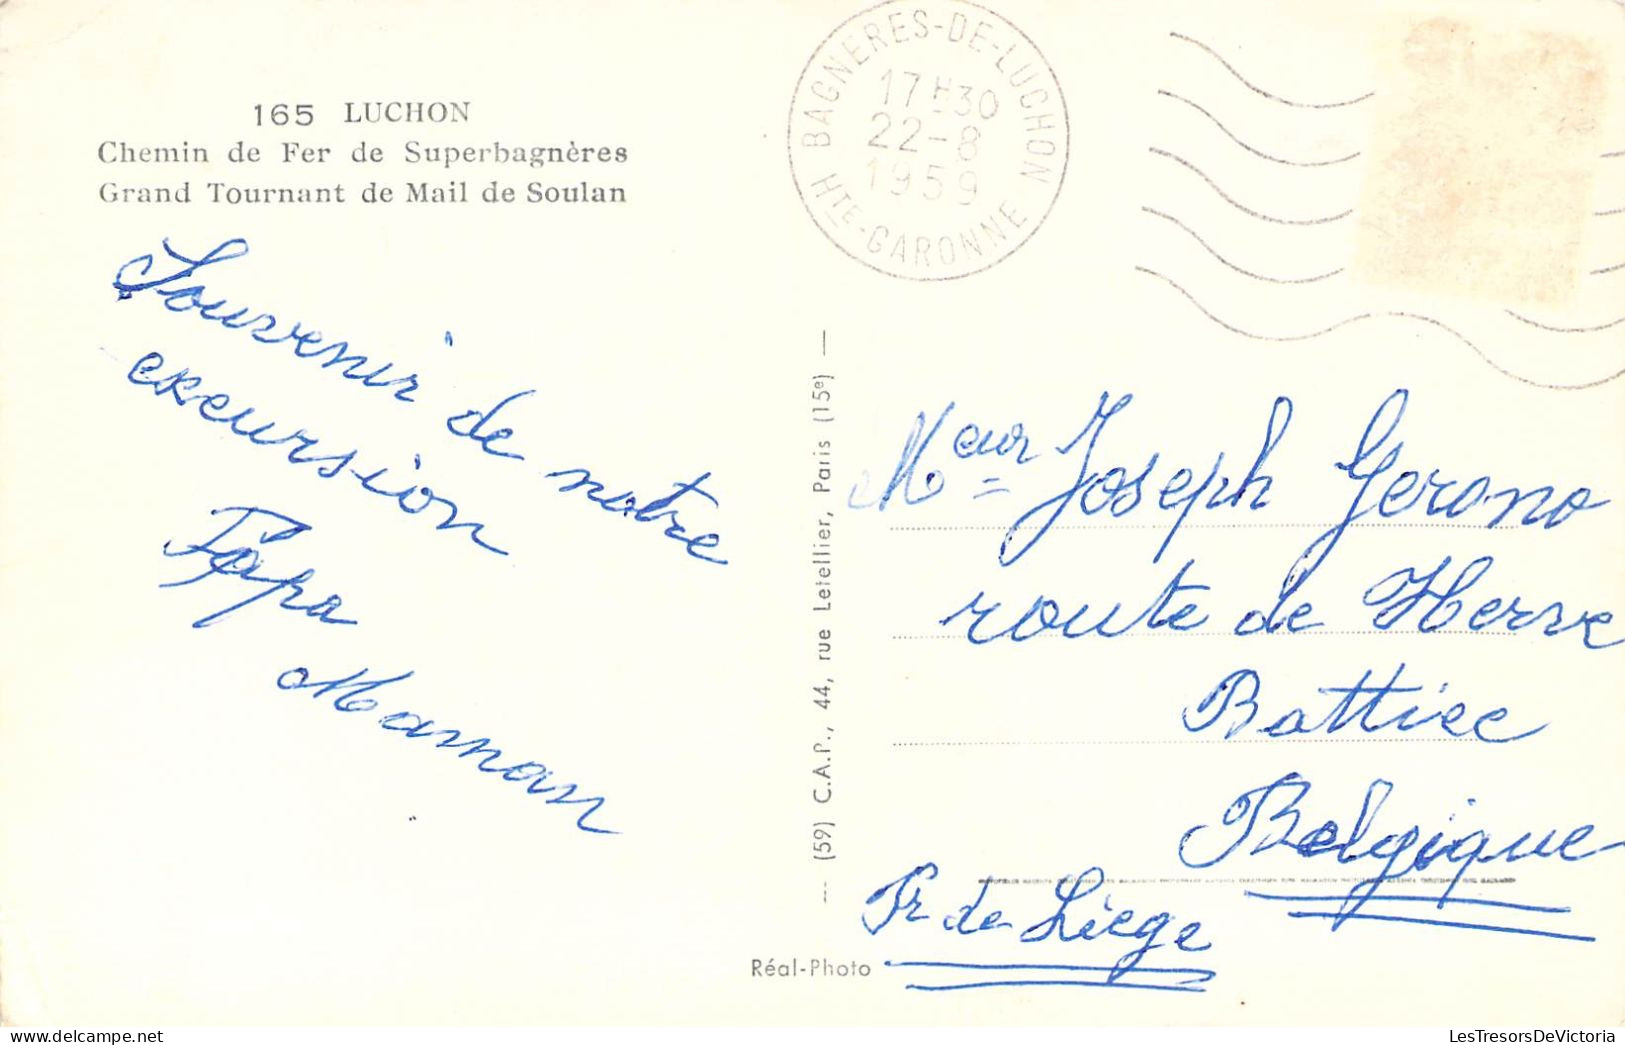 165 LUCHON
Chemin de Fer de Superbagnères
Grand Tournant de Mail de Soulan
BAGNERES-DE-LUCHON
17H30
22-8
1959
HTE-GARONNE
Souvenir de notre
excursion
Papa
Maman
— (59) C.A.P., 44, rue Letellier, Paris (15e) —
Réal-Photo
Meur Joseph Gerono
route de Herve
Battice
Belgique
Pr de Liège
LesTresorsDeVictoria.com